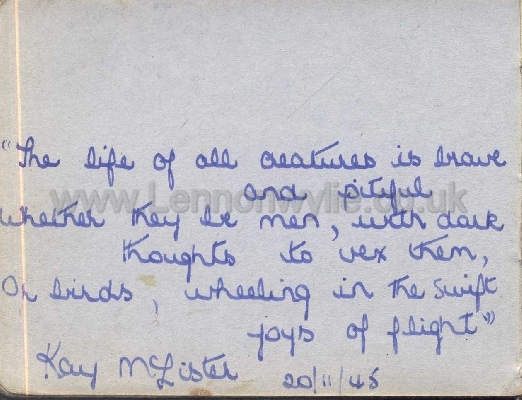 "The life of all creatures is brave
and pitiful
whether they be men, with dark
thoughts to vex them,
Or birds, wheeling in the swift
joys of flight"
Kay McLister 20/11/45
www.Lennonwylie.co.uk